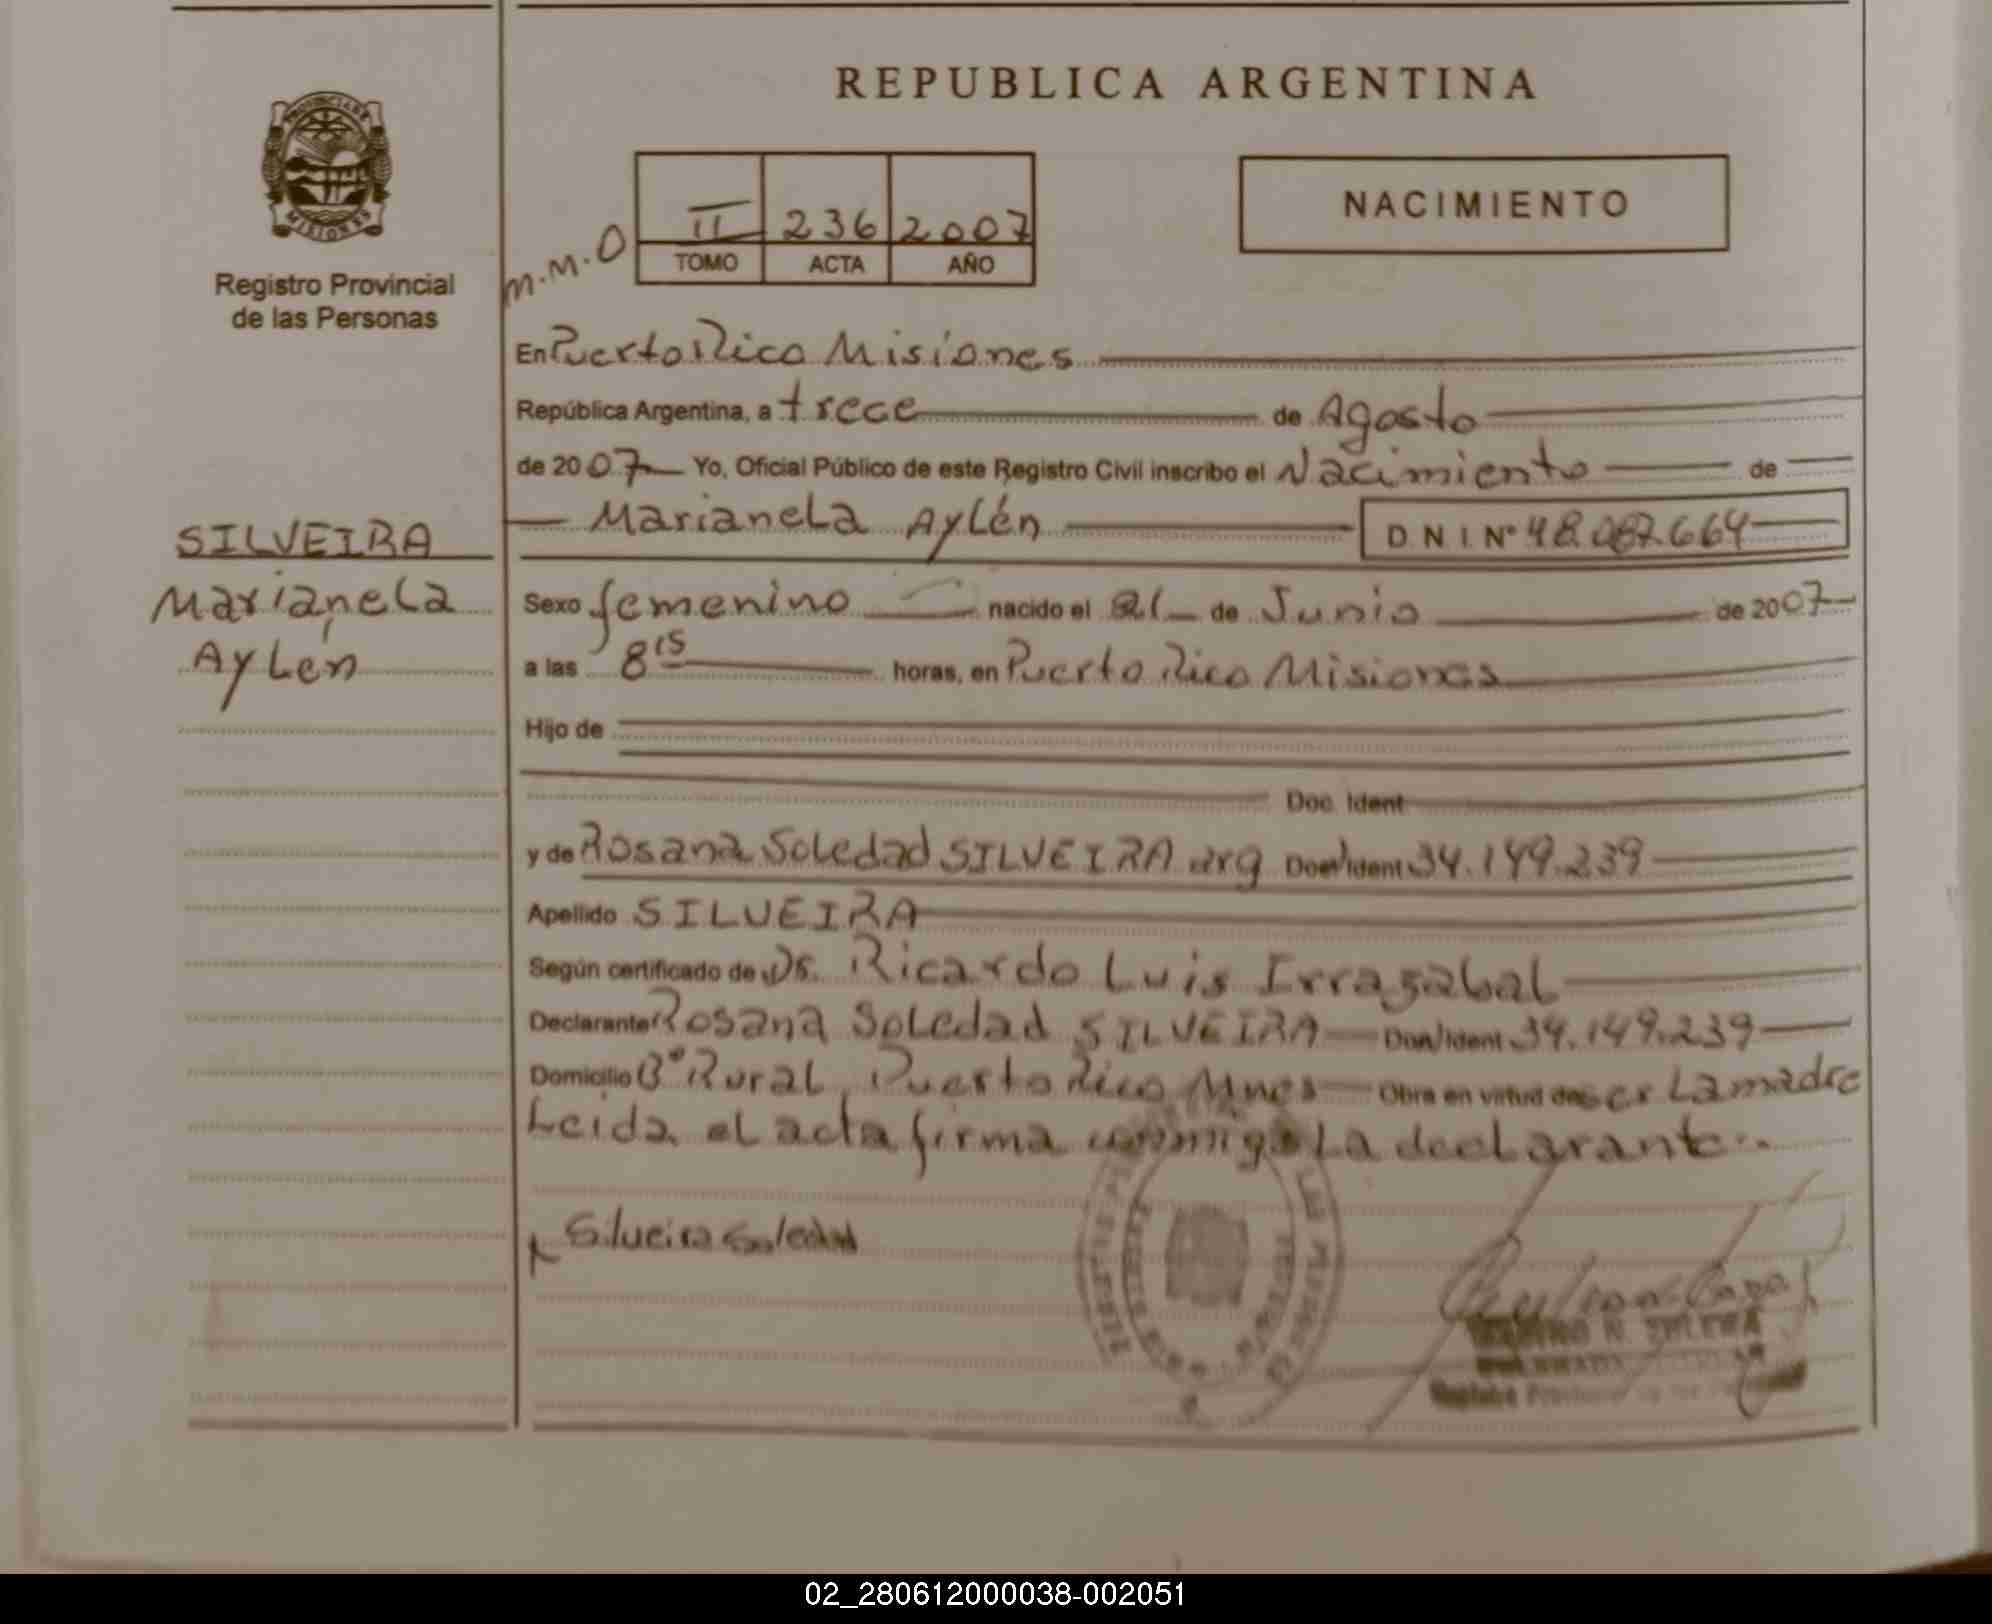 REPUBLICA ARGENTINA
PROVINCIA DE
MISIONES
Registro Provincial
de las Personas
M.M.O
II 236 2007
TOMO ACTA AÑO
NACIMIENTO
En Puerto Rico Misiones
República Argentina, a trece de Agosto
de 2007 Yo, Oficial Público de este Registro Civil inscribo el Nacimiento de
Marianela Aylén D N I Nº 48.087.664
SILVEIRA
Marianela
Aylén
Sexo femenino nacido el 21 de Junio de 2007
a las 8 15 horas, en Puerto Rico Misiones
Hijo de
Doc. Ident
y de Rosana Soledad SILVEIRA arg Doc. Ident 34.149.239
Apellido SILVEIRA
Según certificado de Dr. Ricardo Luis Irrazabal
Declarante Rosana Soledad SILVEIRA Doc. Ident 34.149.239
Domicilio Bº Rural Puerto Rico Mnes Obra en virtud de ser La madre
Leida el acta firma conmigo La declarante..
Silveira Soledad
02_280612000038-002051